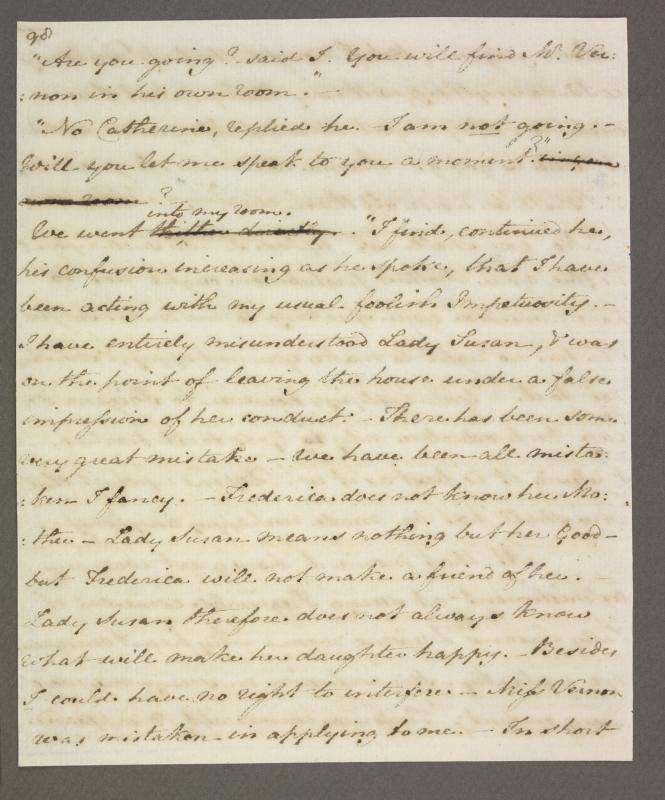 98
"Are you going? said I. You will find Mr. Ver:
:non in his own room."—
"No Catherine, replied he. — I am not going. —
Will you let me speak to you a moment?" in your
own room ?
into my room.
We went thither directly. "I find, continued he,
his confusion increasing as he spoke, that I have
been acting with my usual foolish Impetuosity. —
I have entirely misunderstood Lady Susan, & was
on the point of leaving the house under a false
impression of her conduct. — There has been some
very great mistake — we have been all mista:
:ken I fancy. — Frederica does not know her Mo:
:ther — Lady Susan means nothing but her Good —
but Frederica will not make a friend of her. —
Lady Susan therefore does not always know
what will make her daughter happy. — Besides
I could have no right to interfere — Miss Vernon
was mistaken in applying to me. — In short